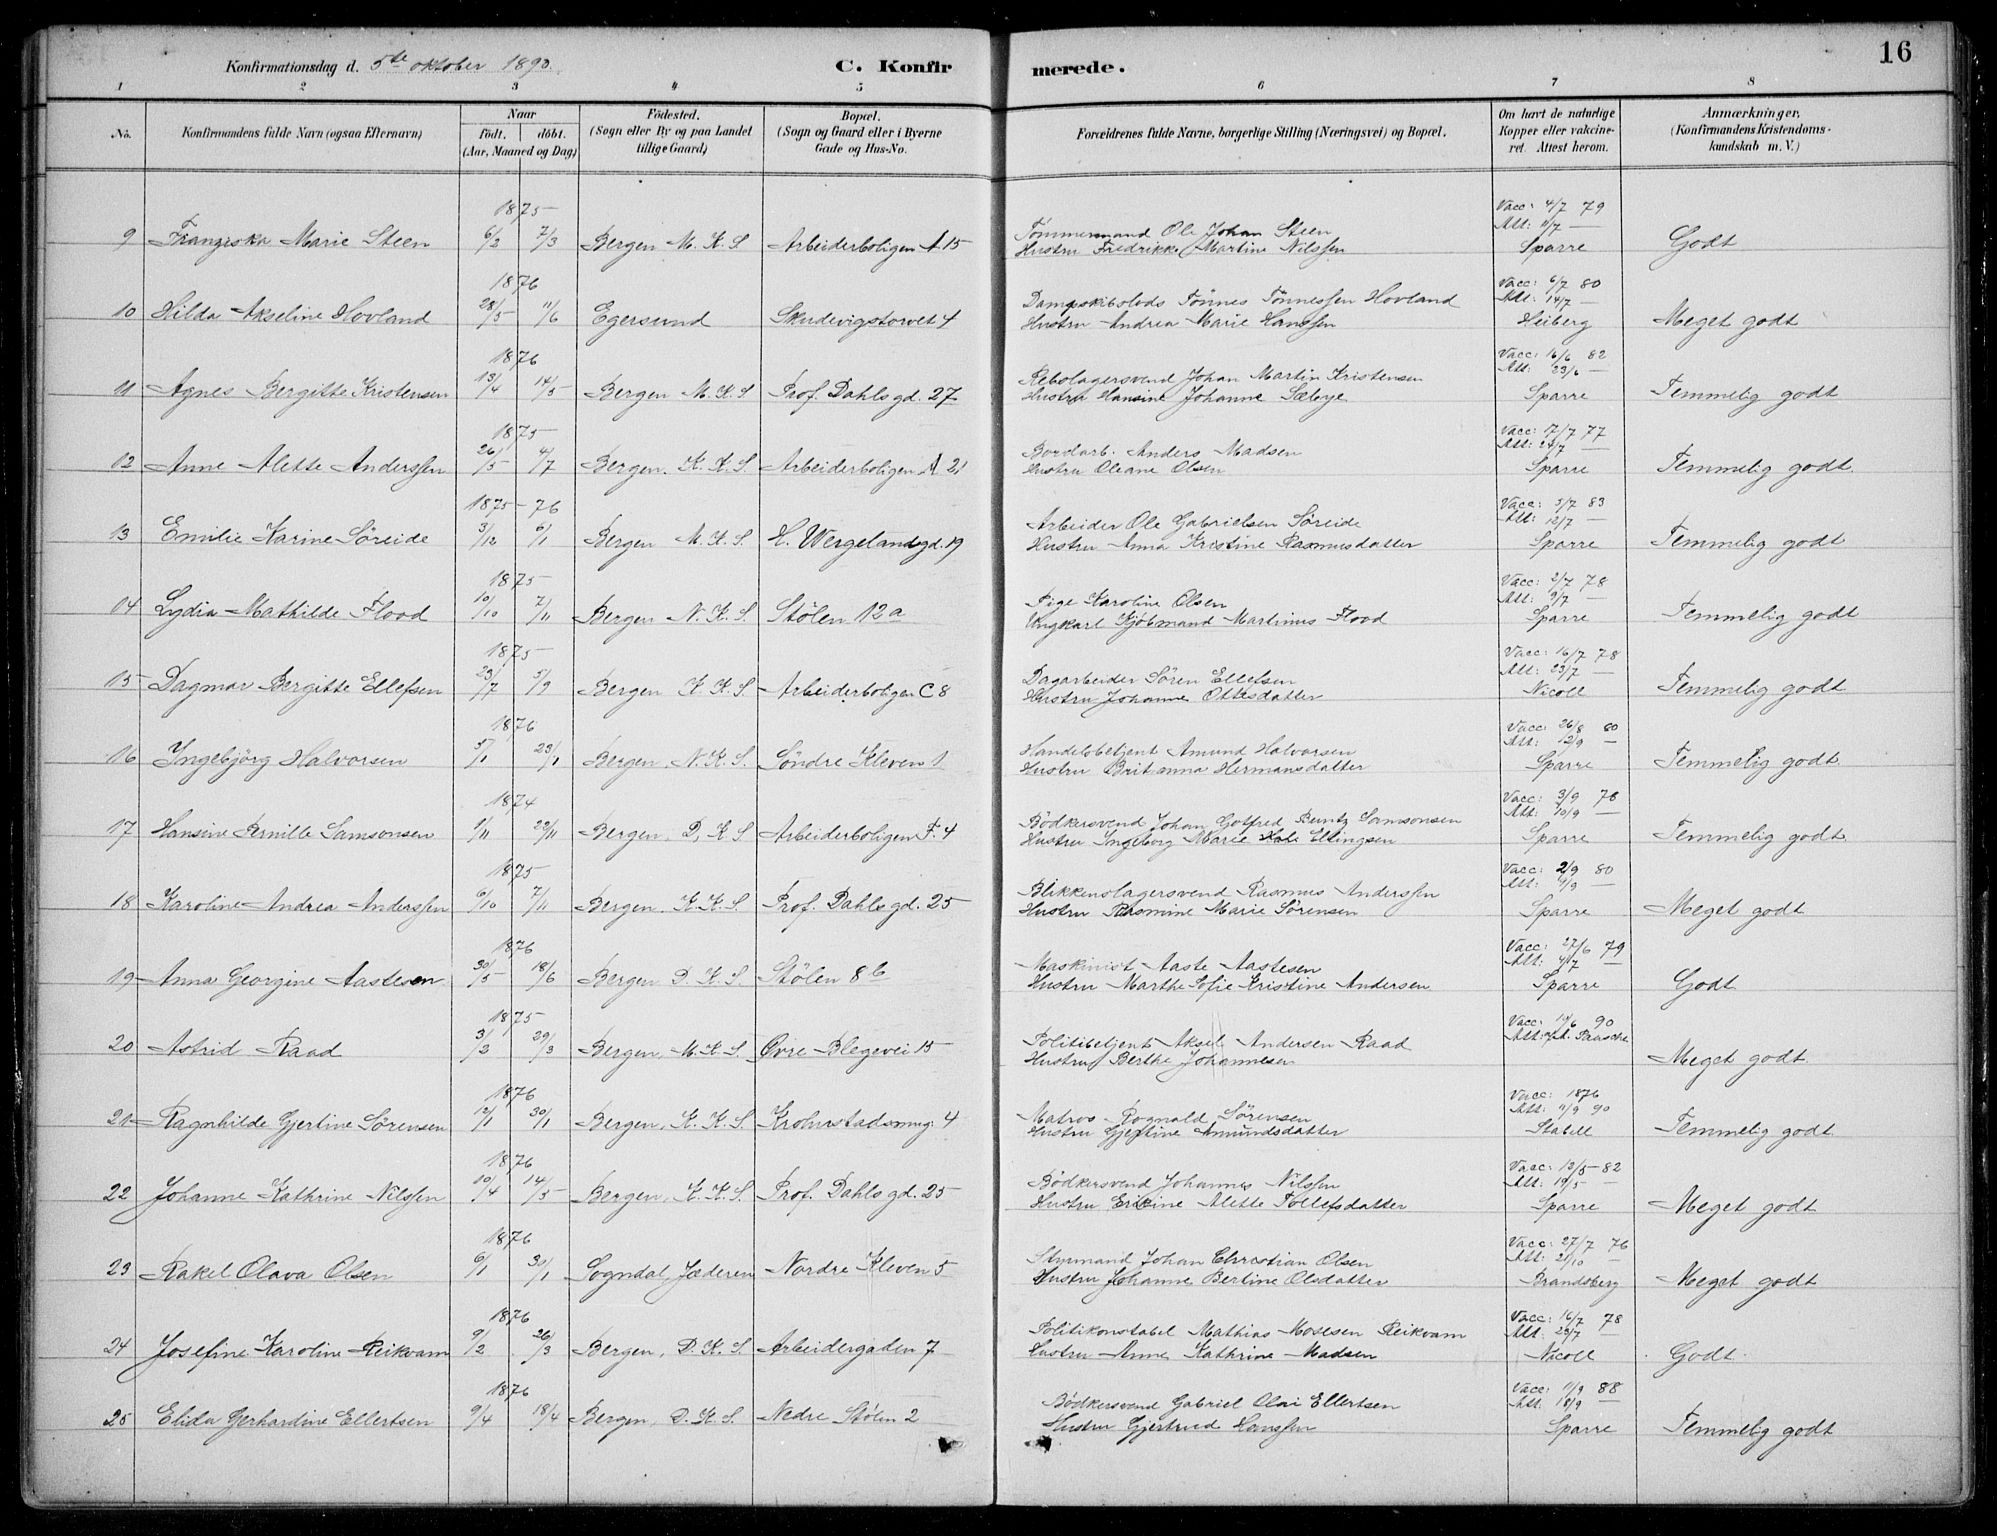 Konfirmationsdag d. 5te oktober 1890. C. Konfirmerede. 16
1 2 3 4 5 6 7 8
No. Konfirmandens fulde Navn (ogsaa Efternavn) Naar født. døbt. (Aar, Maaned og Dag) Fødested. (Sogn eller By og paa Landet tillige Gaard) Bopæl. (Sogn og Gaard eller i Byerne Gade og Hus-No. Forældrenes fulde Navne, borgerlige Stilling (Næringsvei) og Bopæl. Om havt de naturlige Kopper eller vakcineret. Attest herom. Anmærkninger. (Konfirmandens Kristendomskundskab m. V.)
1875 Vacc: 4/7 79
9 Franziska Marie Steen 6/2 7/3 Bergen M. K. S Arbeiderboligen A 15 Tömmermand Ole Johan Steen Att: 11/7 — Godt
Hustru Fredrikke Martine Nilssen Sparre
1876 Vacc: 6/7 80
10 Hilda Akseline Hovland 28/5 11/6 Egersund Skudevigstorvet 4 Dampskibslods Tönnes Tönnessen Hovland Att: 14/7 — Meget godt
Hustru Andrea Marie Hanssen Heiberg
1876 Vacc: 16/6 82
11 Agnes Bergitte Kristensen 13/4 14/5 Bergen M. K. S Prof. Dahls gd. 27 Rebslagersvend Johan Martin Kristensen Att: 23/6 — Temmelig godt
Hustru Hansine Johanne Sæbye Sparre
1875 Vacc: 17/7 77
12 Anne Alette Anderssen 26/5 4/7 Bergen. K. K. S. Arbeiderboligen A. 21 Bordarb. Anders Madsen Att: 24/7 — Temmelig godt.
Hustru Oleane Olsen Sparre
1875 - 76 Vacc: 5/7 83
13 Emilie Karine Söreide 3/12 6/1 Bergen M. K. S. H. Wergelandsgd. 19 Arbeider Ole Gabrielsen Söreide Att: 12/7 — Temmelig godt
Hustru Anna Kristine Rasmusdatter Sparre
1875 Vacc: 2/7 78
14 Lydia Mathilde Flood 10/10 7/11 Bergen N. K. S. Stölen 12 a Pige Karoline Olsen Att: 9/7 — Temmelig godt
Ungkarl Kjöbmand Martinus Flood Sparre
1875 Vacc: 16/7 78
15 Dagmar Bergitte Ellefsen 23/7 5/9 Bergen K. K. S. Arbeiderboligen C 8 Dagarbeider Sören Ellefsen Att: 23/7 — Temmelig godt
Hustru Johanne Ottesdatter Nicoll
1876 Vacc: 26/8 80
16 Ingebjörg Halvorsen 5/1 23/1 Bergen, N. K. S. Söndre Kleven 1 Handelsbetjent Amund Halvorsen Att: 12/9 — Temmelig godt.
Hustru Britanna Hermansdatter Sparre
1874 Vacc: 3/9 78
17 Hansine Pernille Samsonsen 1/11 22/11 Bergen, D, K. S Arbeiderboligen F. 4 Bödkersvend Johan Gotfred Bentz Samsonsen Att: 10/9 — Temmelig godt
Hustru Ingeborg Marie Eltingsen Sparre
1875 Vacc: 2/9 80
18 Karoline Andrea Anderssen 6/10 7/11 Bergen. K. K. S. Prof. Dahls gd. 25 Blikkenslagersvend Rasmus Anderssen Att: 9/9 — Meget godt
Hustru Rasmine Marie Sörensen Sparre
1876 Vacc: 27/6 79
19 Anna Georgine Aastesen 30/5 18/6 Bergen D. K. S. Stölen 8 b Maskinist Aaste Aastesen Att: 4/7 — Godt
Hustru Marthe Sofie Kristine Andersen Sparre
1875 Vacc: 19/6 90
20 Astrid Raad 3/3 29/3 Bergen, M. K. S. Övre Blegevei 15 Politibetjent Aksel Andersen Raad Att: Paasche Meget godt.
Hustru Berthe Johannesen
1876 Vacc: 1876
21 Ragnhilde Gjertine Sörensen 12/1 30/1 Bergen, K. K. S. Krohnstadsmug. 4 Matros Rognald Sörensen Att: 11/9 90 Temmelig godt.
Hustru Gjertine Amundsdatter Stabell
1876 Vacc: 12/5 - 82
22 Johanne Kathrine Nilssen 10/4 14/5 Bergen, K. K. S. Prof. Dahls gd. 25 Bödkersvend Johannes Nilssen Att: 19/5 — Meget godt
Hustru Erikine Alette Tollefsdatter Sparre
1876 Vacc: 27/7 76
23 Rakel Olava Olsen 6/1 30/1 Sogndal, Jæderen Nordre Kleven 5 Styrmand Johan Christian Olsen Att: 21/10 — Meget godt
Hustru Johanne Bertine Olsdatter Brandsberg
1876 Vacc: 16/7 78
24 Josefine Karoline Reikvam 9/2 26/3 Bergen, D. K. S. Arbeidergaden 7 Politikonstabel Mathias Mosesen Reikvam Att: 23/7 — Godt
Hustru Anne Kathrine Madsen Nicoll
1876 Vacc: 11/9 88
25 Elida Gerhardine Ellertsen 9/4 18/4 Bergen, D. K. S. Nedre Stölen 2 Bödkersvend Gabriel Olai Ellertsen Att. 18/9 — Temmelig godt
Hustru Gjertrud Hanssen Sparre